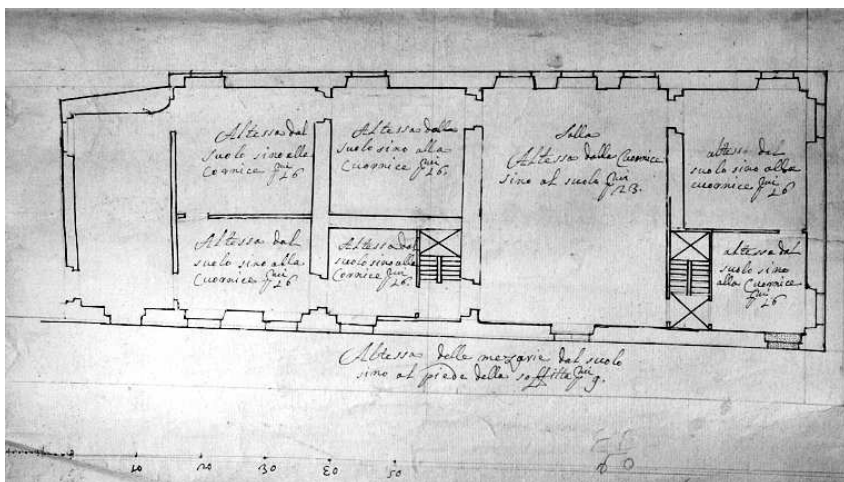 Altessa dal
suolo sino alla
Cornice pui 16
Altessa dalla
suolo sino alla
Cuornice pui 16.
Salla
Altessa dalla Cuornice
sino al suolo pui 23.
altessa dal
suolo sino alla
cuornice pui 16
Altessa dal
suolo sino alla
Cuornice pui 16
Altessa dal
suolo sino alla
Cornice pui 16.
altessa dal
suolo sino
alla Cuornice
pui 16
Altessa delle mezarie dal suolo
sino al piede della soffitta pui 9.
10 20 30 50